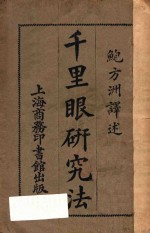 鮑方洲譯述
千里眼研究法
上海商務印書館出版